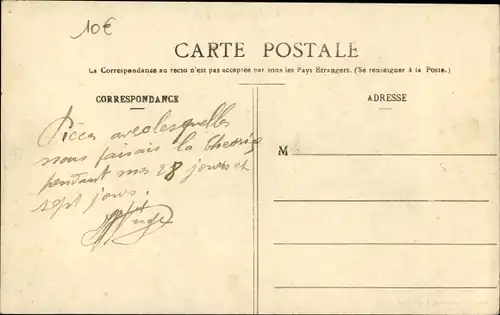 10€
CARTE POSTALE
La Correspondance au recto n'est pas acceptée par tous les Pays Etrangers. (Se renseigner à la Poste.)
CORRESPONDANCE
ADRESSE
Pièces avec lesquelles
nous faisais la theorie
pendant mes 28 jours et
sept jours.
M